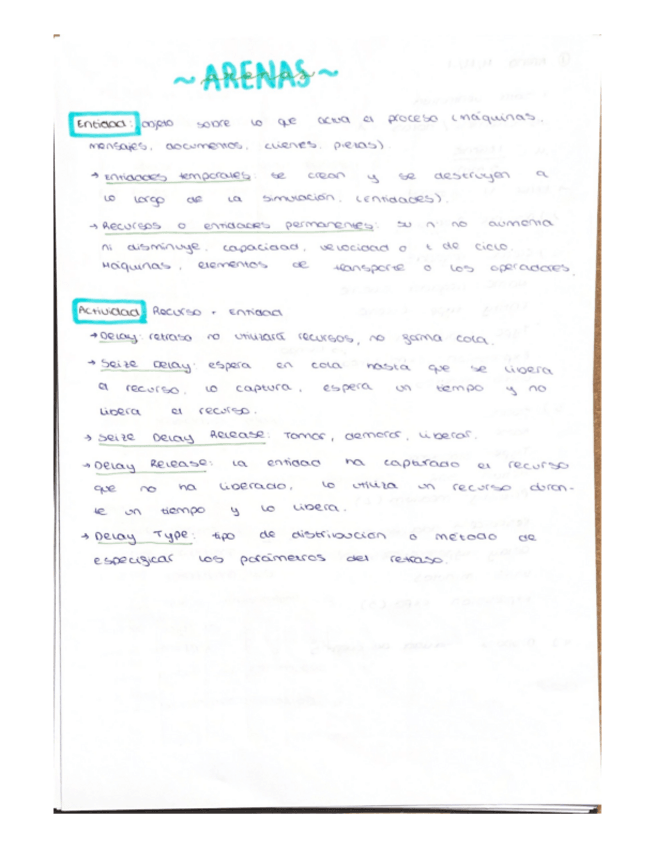 ~ ARENAS ~
Entidad: objeto sobre lo que actua el proceso (máquinas,
mensajes, documentos, clienes, piezas).
→ Entidades temporales: se crean y se destruyen a
lo largo de la simulación. (entidades).
→ Recursos o entidades permanentes: su nº no aumenta
ni disminuye. capacidad, velocidad o t de ciclo.
Máquinas, elementos de transporte o los operadores.
Actividad Recurso + entidad
→ Delay: retraso no utilizará recursos, no forma cola.
→ Seize Delay: espera en cola hasta que se libera
el recurso, lo captura, espera un tiempo y no
libera el recurso.
→ Seize Delay Release: Tomar, demorar, liberar.
→ Delay Release: la entidad ha capturado el recurso
que no ha liberado, lo utiliza un recurso duran-
te un tiempo y lo libera.
→ Delay Type: tipo de distribución o método de
especificar los parámetros del retraso.